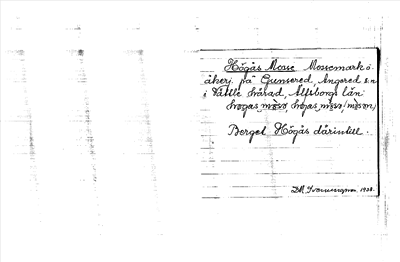 Högås Mosse Mossemark o.
åkerj. på Gunnered, Angered s:n
i Vättle härad, Älfsborgs län.
högas moso högas moso (moson)
Berget Högås därintill.
D.A. 1928.